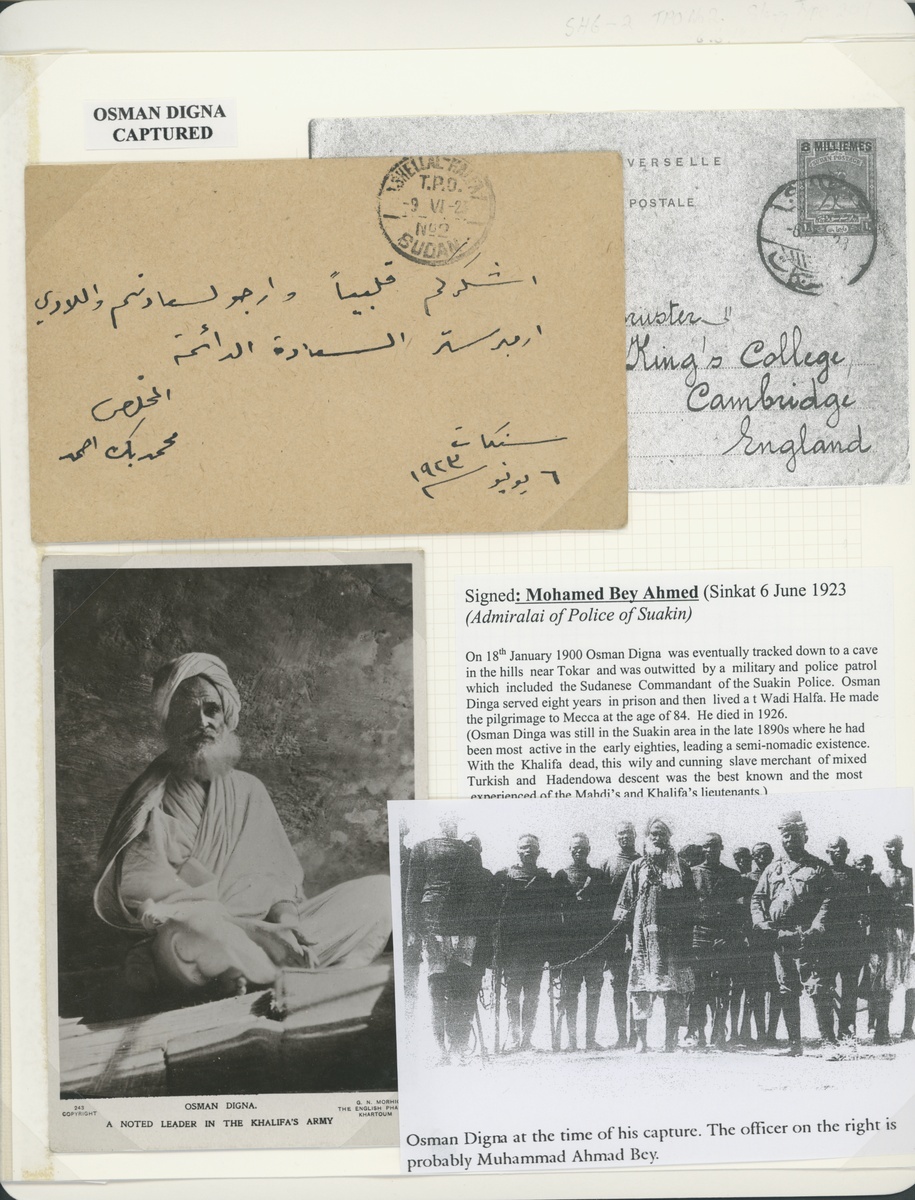 OSMAN DIGNA
CAPTURED
VERSELLE
POSTALE
8 MILLIEMES
SUDAN POSTAGE
King's College,
Cambridge
England
SHELLAL-HALFA
T.P.O.
-9 VI-2
No2
SUDAN
اشكركم قلبياً وارجو لسعادتكم والليدي
ارمبرستر السعادة الدائمة
المخلص
محمد بك احمد
سنكات
٦ يونيو ١٩٢٣
Signed: Mohamed Bey Ahmed (Sinkat 6 June 1923
(Admiralai of Police of Suakin)
On 18th January 1900 Osman Digna was eventually tracked down to a cave
in the hills near Tokar and was outwitted by a military and police patrol
which included the Sudanese Commandant of the Suakin Police. Osman
Dinga served eight years in prison and then lived a t Wadi Halfa. He made
the pilgrimage to Mecca at the age of 84. He died in 1926.
(Osman Dinga was still in the Suakin area in the late 1890s where he had
been most active in the early eighties, leading a semi-nomadic existence.
With the Khalifa dead, this wily and cunning slave merchant of mixed
Turkish and Hadendowa descent was the best known and the most
experienced of the Mahdi's and Khalifa's lieutenants.)
245
COPYRIGHT
OSMAN DIGNA.
A NOTED LEADER IN THE KHALIFA'S ARMY
G. N. MORHI
THE ENGLISH PHA
KHARTOUM
Osman Digna at the time of his capture. The officer on the right is
probably Muhammad Ahmad Bey.